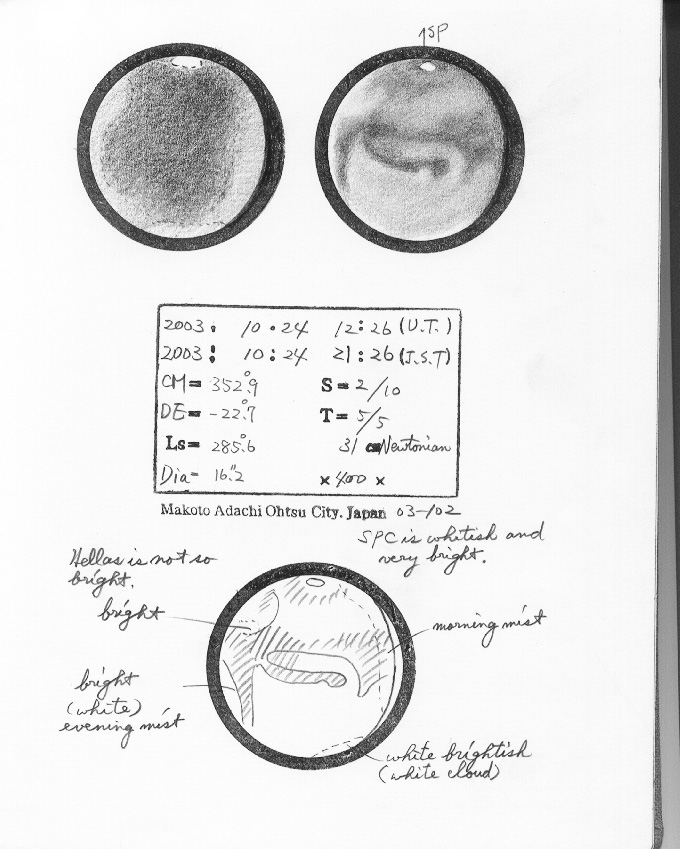 ↑SP
2003: 10・24 12:26 (U.T.)
2003: 10:24 21:26 (J.S.T)
CM= 352°.9 S= 2/10
DE= -22°.7 T= 5/5
Ls= 285°.6 31 cm Newtonian
Dia= 16".2 × 400 ×
Makoto Adachi Ohtsu City. Japan 03-102
SPC is whitish and
very bright.
Hellas is not so
bright.
bright
morning mist
bright
(white)
evening mist
white brightish
(white cloud)